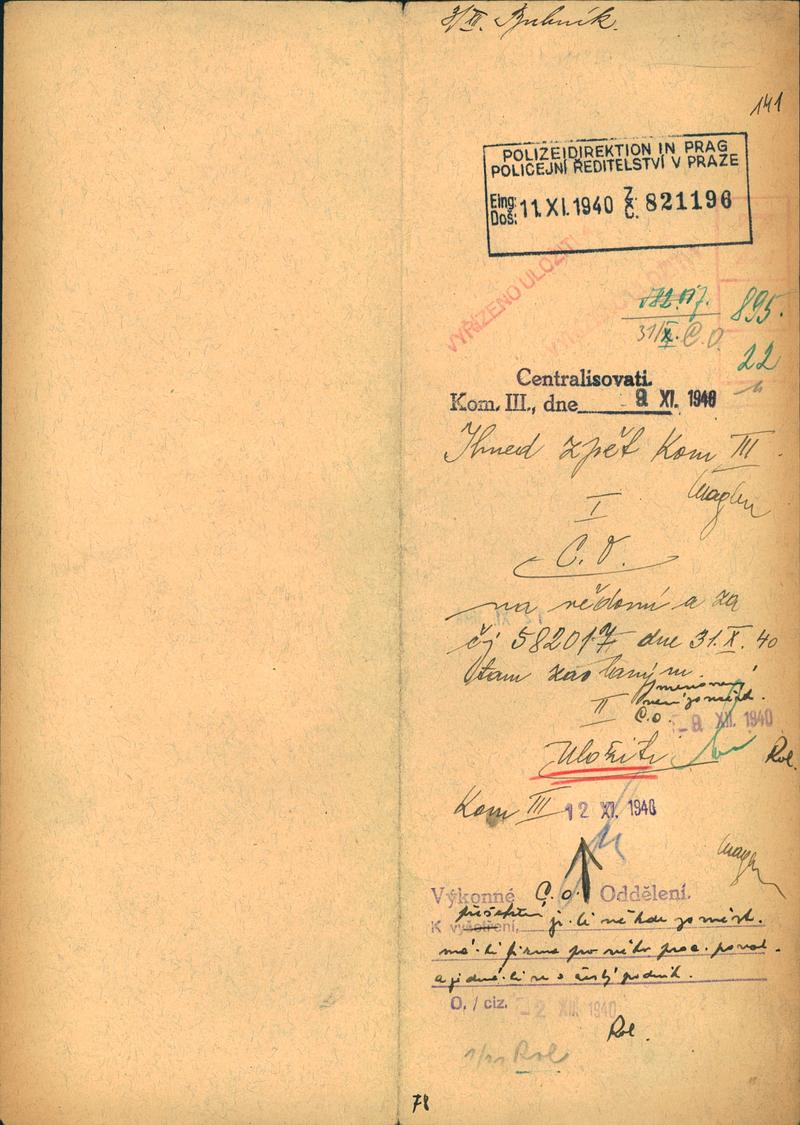 3/XII. Bubník.
141
POLIZEIDIREKTION IN PRAG
POLICEJNÍ ŘEDITELSTVÍ V PRAZE
Eing: Doš: 11. XI. 1940 Z. Č. 821196
VYŘÍZENO ULOŽITI
582.017.
895.
31/X. C.O.
22
Centralisovati.
Kom. III., dne 9 XI. 1940
Ihned zpět Kom III
I
C. O.
na vědomí a za
čj 582017 dne 31. X. 40
tam zaslaným.
jmenovaný
II
není zaměst.
C.O.
-9 XII. 1940
Uložiti
Rol.
Kom III 12 XI. 1940
Výkonné C. o. Oddělení.
K vyšetření, je-li někde zaměst.
má-li firma pro něho prac. povol.
a jedná-li se o čistý podnik.
O. / ciz. -2 XII. 1940
Rol.
Rol
78